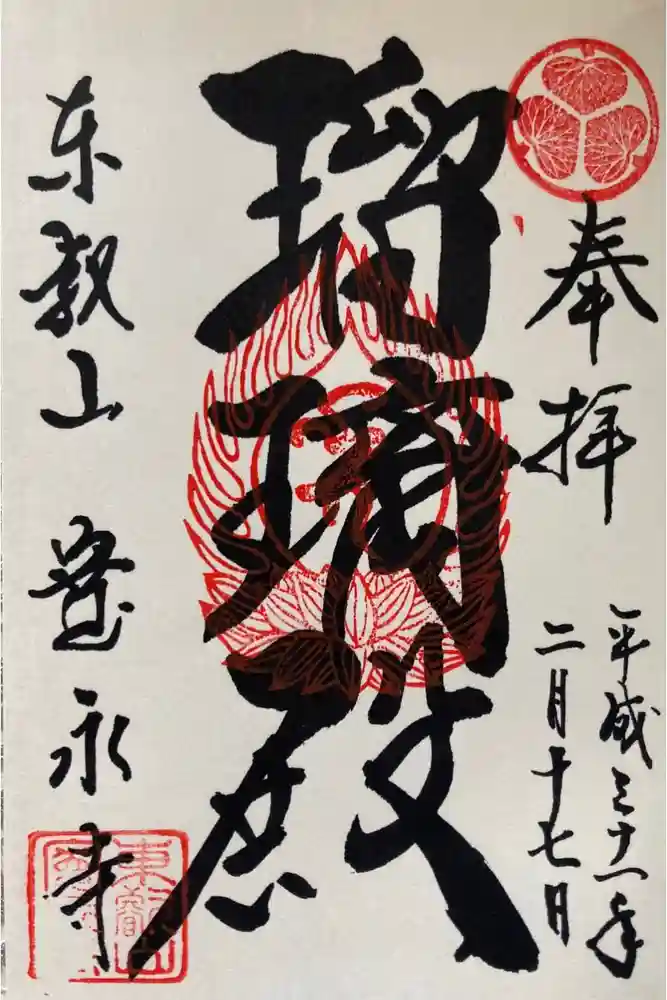 奉拝
平成三十一年
二月十七日
瑠璃殿
東叡山 寛永寺